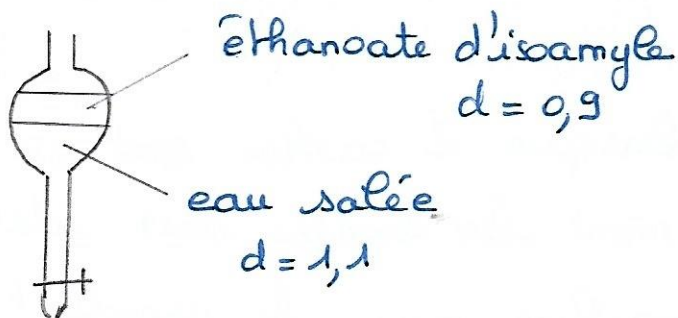 éthanoate d'isoamyle
d = 0,9
eau salée
d = 1,1